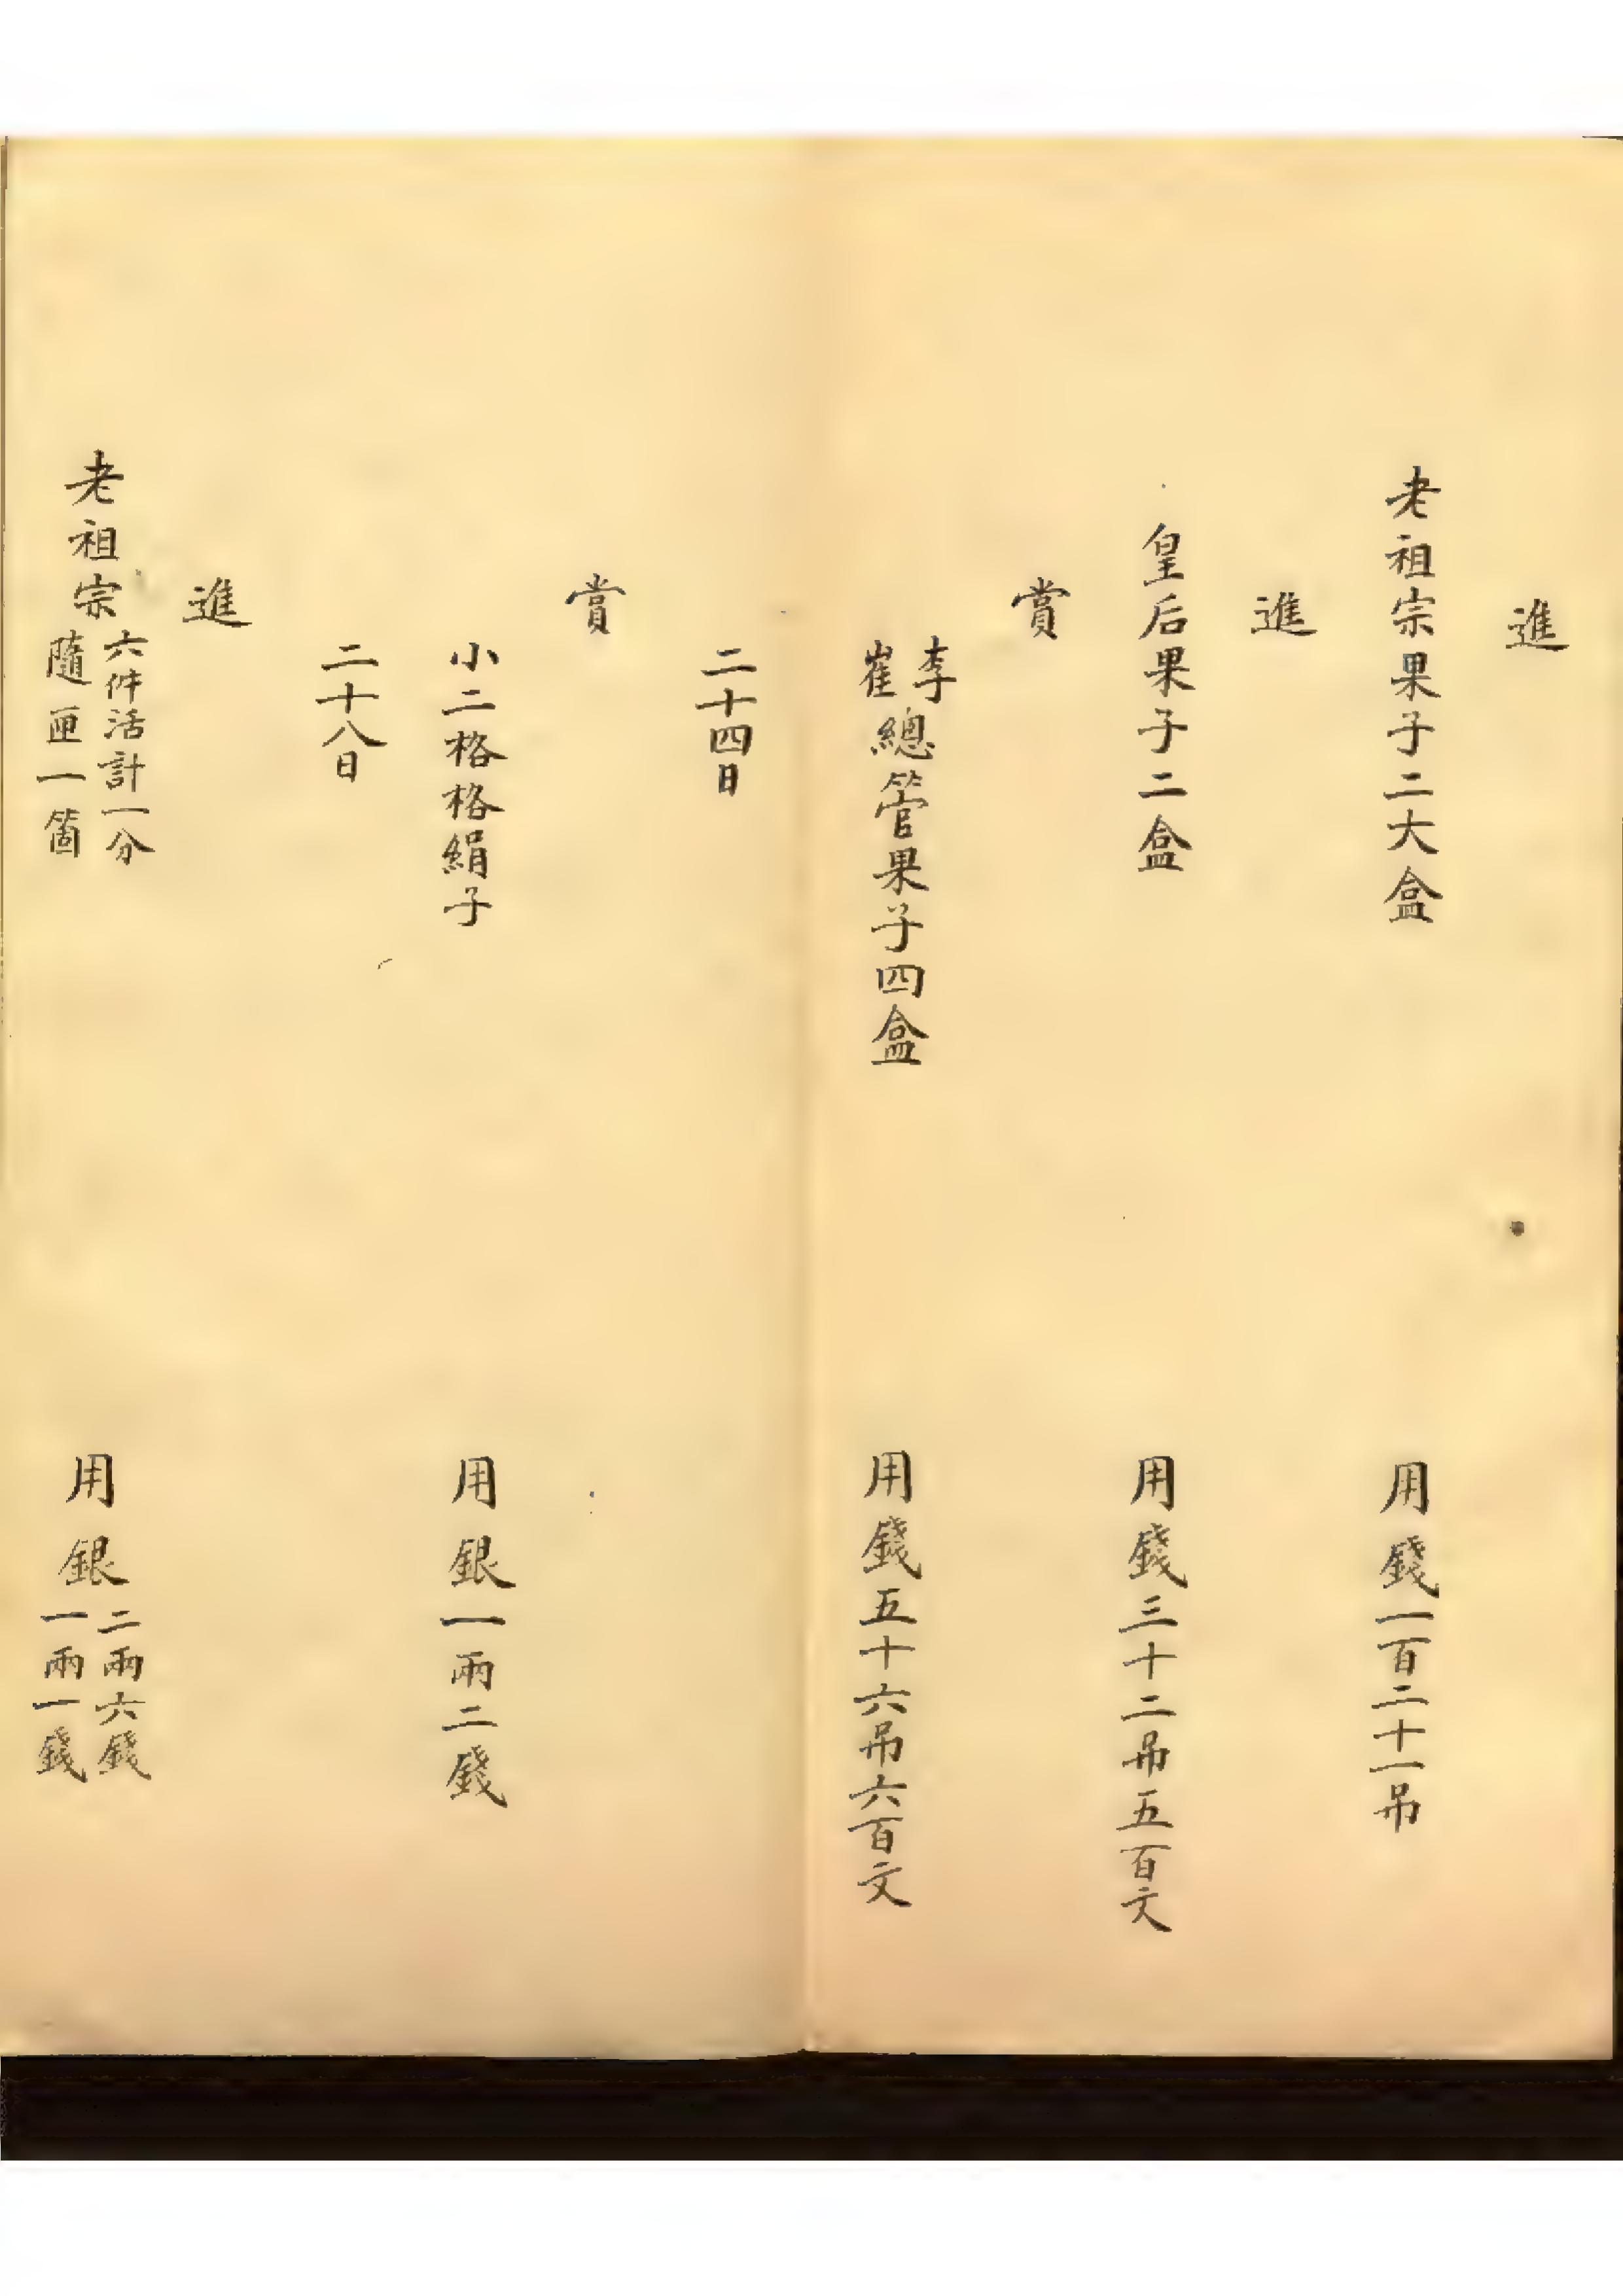 進
老祖宗果子二大盒 用錢一百二十一吊
進
皇后果子二盒 用錢三十二吊五百文
賞
李崔總管果子四盒 用錢五十六吊六百文
二十四日
賞
小二格格絹子 用銀一兩二錢
二十八日
進
老祖宗六件活計一分隨匣一箇 用銀二兩六錢一兩一錢